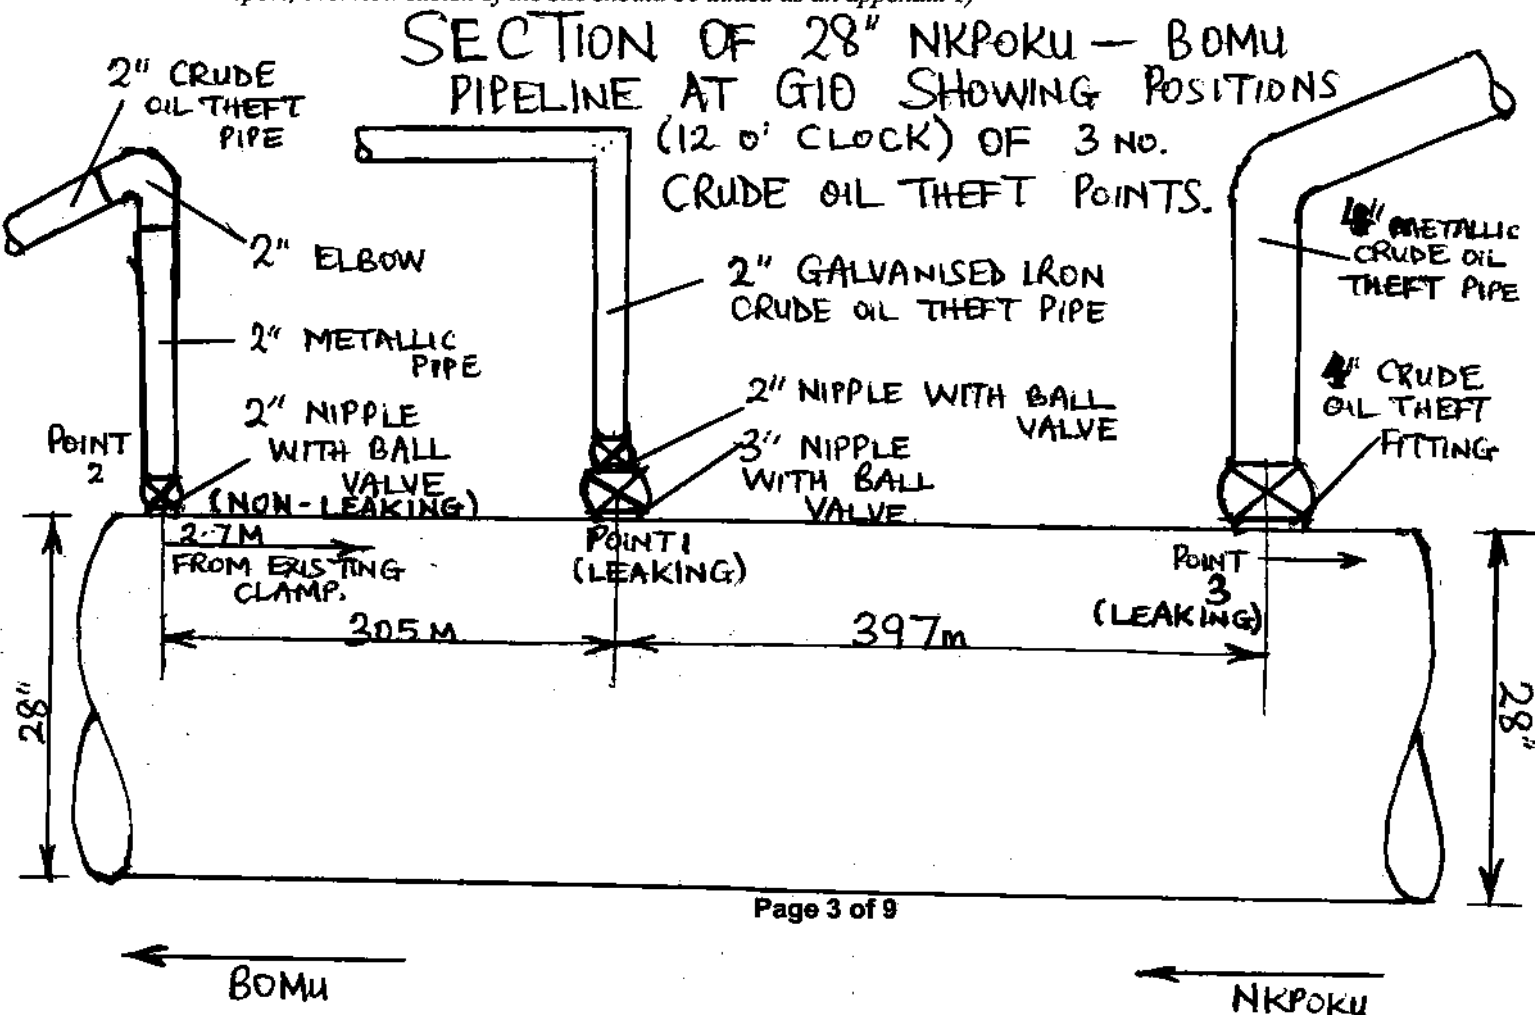 SECTION OF 28" NKPOKU — BOMU
PIPELINE AT GIO SHOWING POSITIONS
(12 O' CLOCK) OF 3 NO.
CRUDE OIL THEFT POINTS.
2" CRUDE
OIL THEFT
PIPE
2" ELBOW
2" METALLIC
PIPE
POINT
2
2" NIPPLE
WITH BALL
VALVE
(NON-LEAKING)
2.7M
FROM EXISTING
CLAMP.
2" GALVANISED IRON
CRUDE OIL THEFT PIPE
2" NIPPLE WITH BALL
VALVE
3" NIPPLE
WITH BALL
VALVE
POINT 1
(LEAKING)
4" METALLIC
CRUDE OIL
THEFT PIPE
4" CRUDE
OIL THEFT
FITTING
POINT
3
(LEAKING)
305M
397m
28"
28"
Page 3 of 9
BOMU
NKPOKU